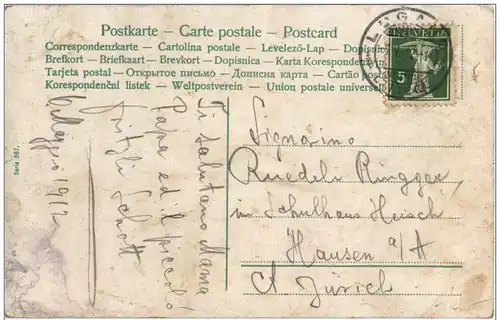 Postkarte — Carte postale — Postcard
Correspondenzkarte — Cartolina postale — Levelező-Lap — Dopisnice
Brefkort — Briefkaart — Brevkort — Dopisnica — Karta Korespondenzyjna
Tarjeta postal — Открытое письмо — Дописна карта — Cartão postal
Korespondenční listek — Weltpostverein — Union postale universelle
LUGA
HELVETIA
5
Serie 367.
Maggio 1912
Ti salutano Mama
Papa ed il piccolo
Fritzli Schott
Signorino
Ruedeli Ringger
im Schulhaus Heisch
Hausen a/A
Ct Zürich